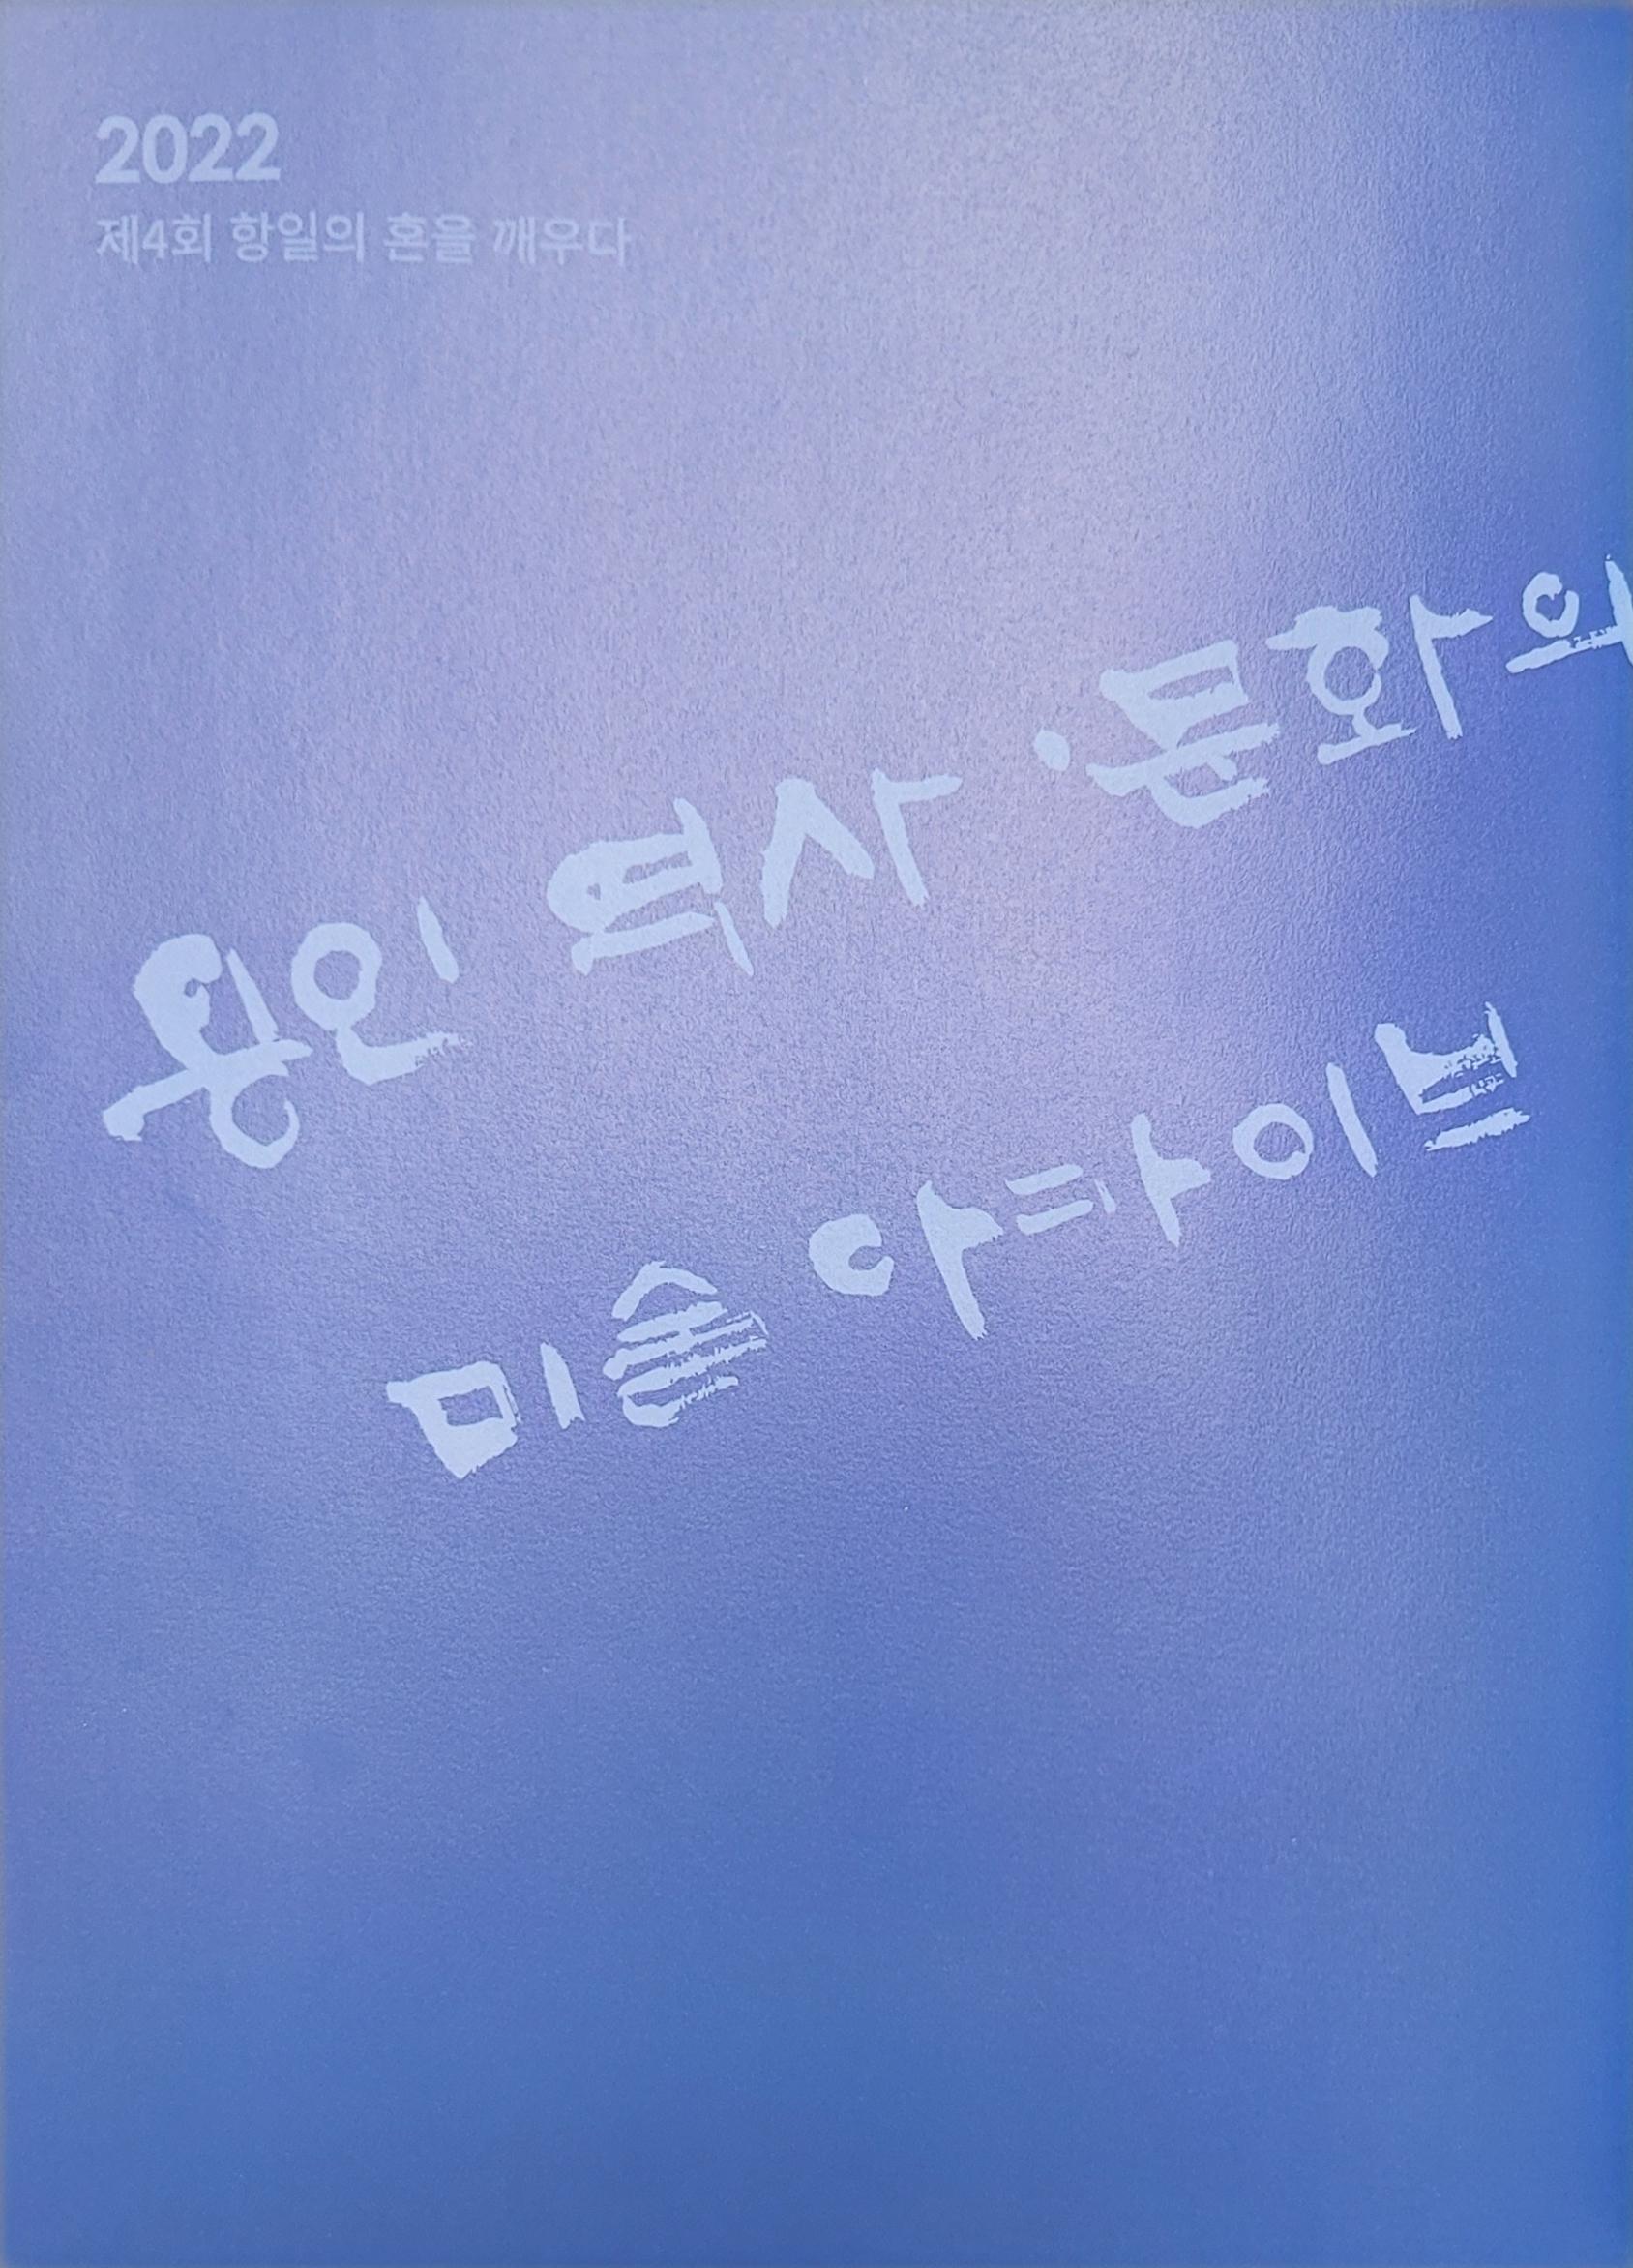 2022
제4회 항일의 혼을 깨우다
용인 역사·문화와
미술 아카이브